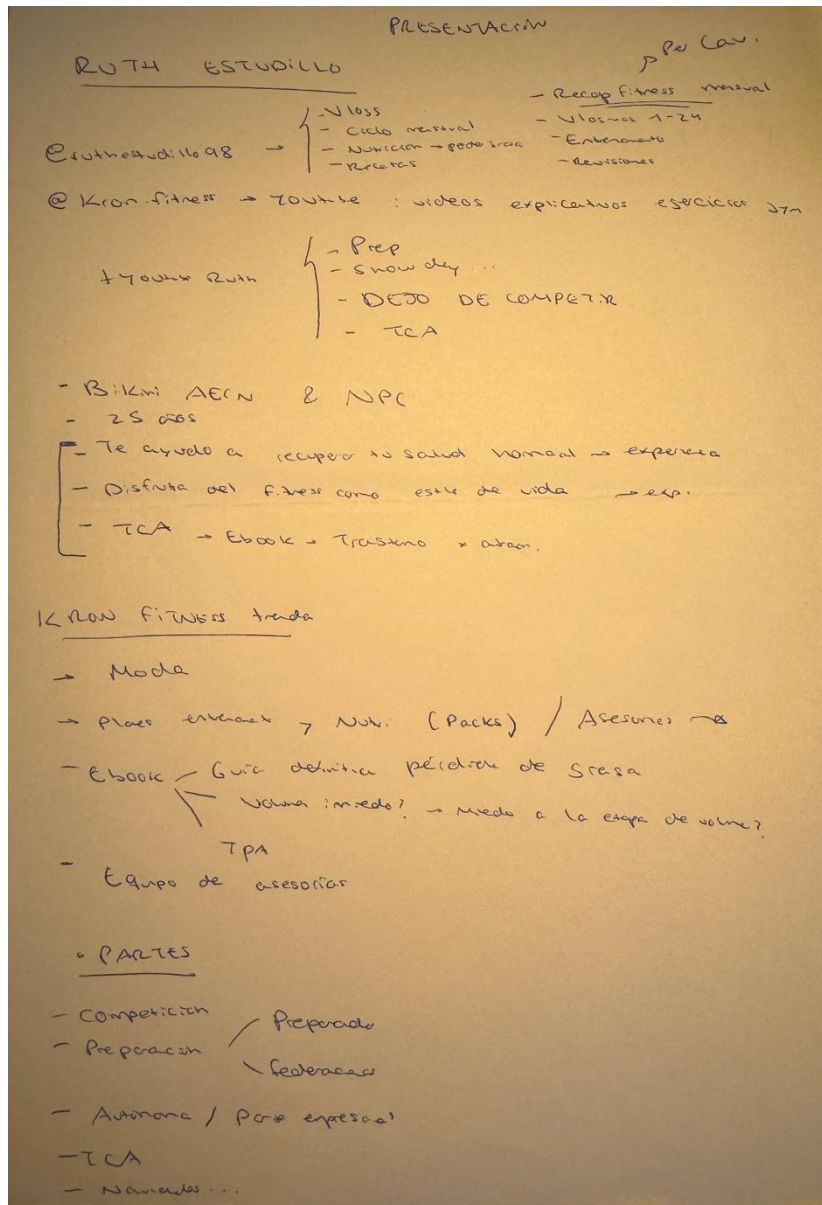 PRESENTACIÓN
RUTH ESTUDILLO
- Recap fitness mensual
- Vlogmas 1-24
- Entrenamiento
- Revisiones
@ruthestudillo98 →
- Vlogs
- Ciclo menstrual
- Nutrición →
- Recetas
@Kron.fitness → Youtube : videos explicativos ejercicios gym
+ Youtube Ruth
- Prep
- Show day...
- DEJO DE COMPETIR
- TCA
- Bikini AECN & NPC
- 25 años
- Te ayudo a recuperar tu salud hormonal → experiencia
- Disfruta del fitness como estilo de vida → exp.
- TCA → Ebook → Trastorno x atracón.
KRON FITNESS tienda
→ Moda
→ Planes entrenamiento y Nutri. (Packs) / Asesorías →
- Ebook - Guía definitiva pérdida de grasa
Volumen ¿miedo? → Miedo a la etapa de volumen?
TPA
- Equipo de asesorías
• PARTES
- Competición
- Preparación
Preparador
federaciones
- Autónoma / empresa
- TCA
- Navidades...